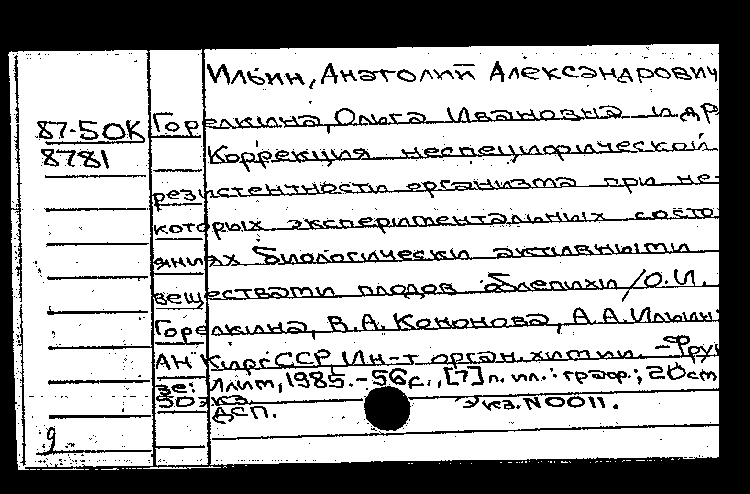 Ильин, Анатолий Александрович
87-50К Горелкина, Ольга Ивановна и др
8781 Коррекция неспецифической
резистентности организма при не-
которых экспериментальных состо
яниях биологически активными
веществами плодов облепихи /О.И.
Горелкина, В.А. Кононова, А.А. Ильин:
АН КиргССР, Ин-т орган. химии. -Фрун
зе: Илим, 1985. -56с., [7]л. ил.: граф.; 20см
50 экз.
ДСП. Экз. N0011.
9